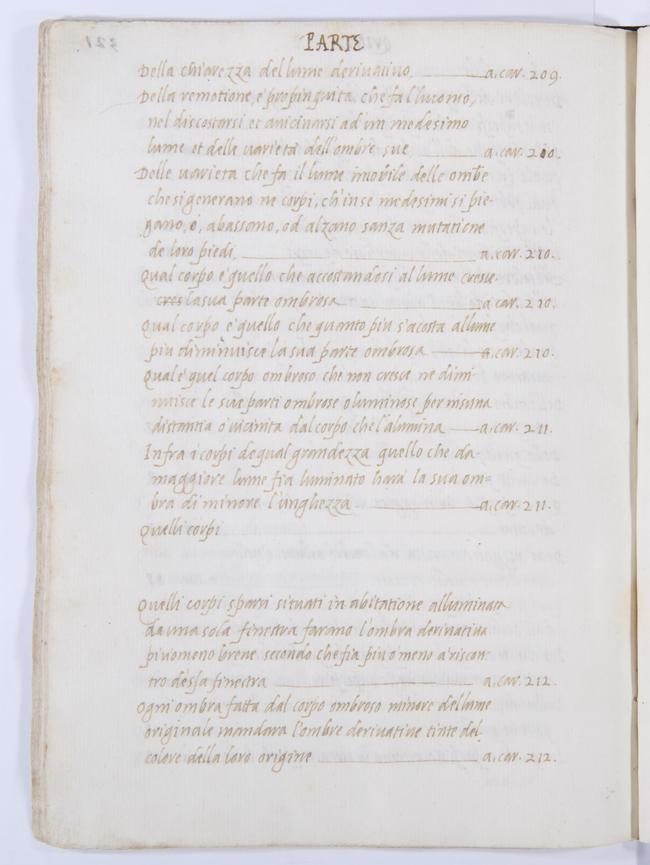 PARTE
Della chiarezza del lume derivativo, a.car. 209.
Della remotione, e propinquità che fa l'huomo,
nel discostarsi et avicinarsi ad'un medesimo
lume et della varietà dell'ombre sue a.car. 210.
Delle varietà che fa il lume imobile delle ombe
che si generano ne corpi, ch'in se medesimi si pie-
gano, o, abassono, od alzano sanza mutatione
de loro piedi, a.car. 210.
Qual corpo e' quello che accostandosi al lume cresce
cres la sua parte ombrosa a car. 210.
Qual corpo e' quello che quanto piu s'acosta allume
piu diminuisce la sua parte ombrosa a.car. 210.
Qual e' quel corpo ombroso che non cresce ne dimi
nuisce le sue parti ombrose o luminose per nisuna
distantia o vicinita dal corpo che l'alumina a.car. 211.
Infra i corpi d'equal grandezza quello che da
maggiore lume fia luminato harà la sua om=
bra di minore lunghezza a.car. 211.
Quelli corpi
Quelli corpi sparti situati in abitatione alluminata
da una sola finestra farano l'ombra derivativa
piu o meno breve secondo che fia piu o meno a riscon
tro dessa finestra a.car. 212.
Ogni ombra fatta dal corpo ombroso minore del lume
originale mandara l'ombre derivative tinte del
colore della loro origine a.car. 212.